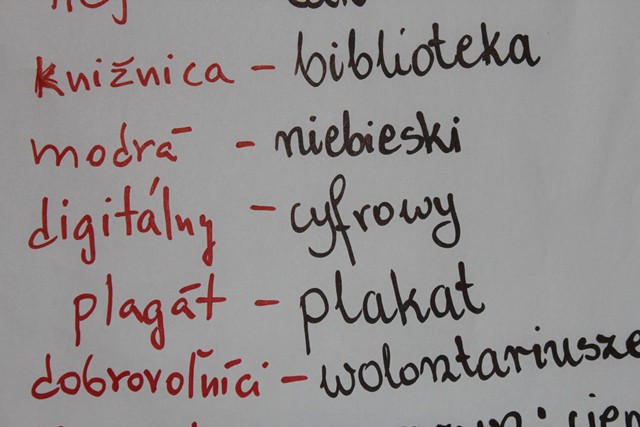 knižnica - biblioteka
modrá - niebieski
digitálny - cyfrowy
plagát - plakat
dobrovoľníci - wolontariusze